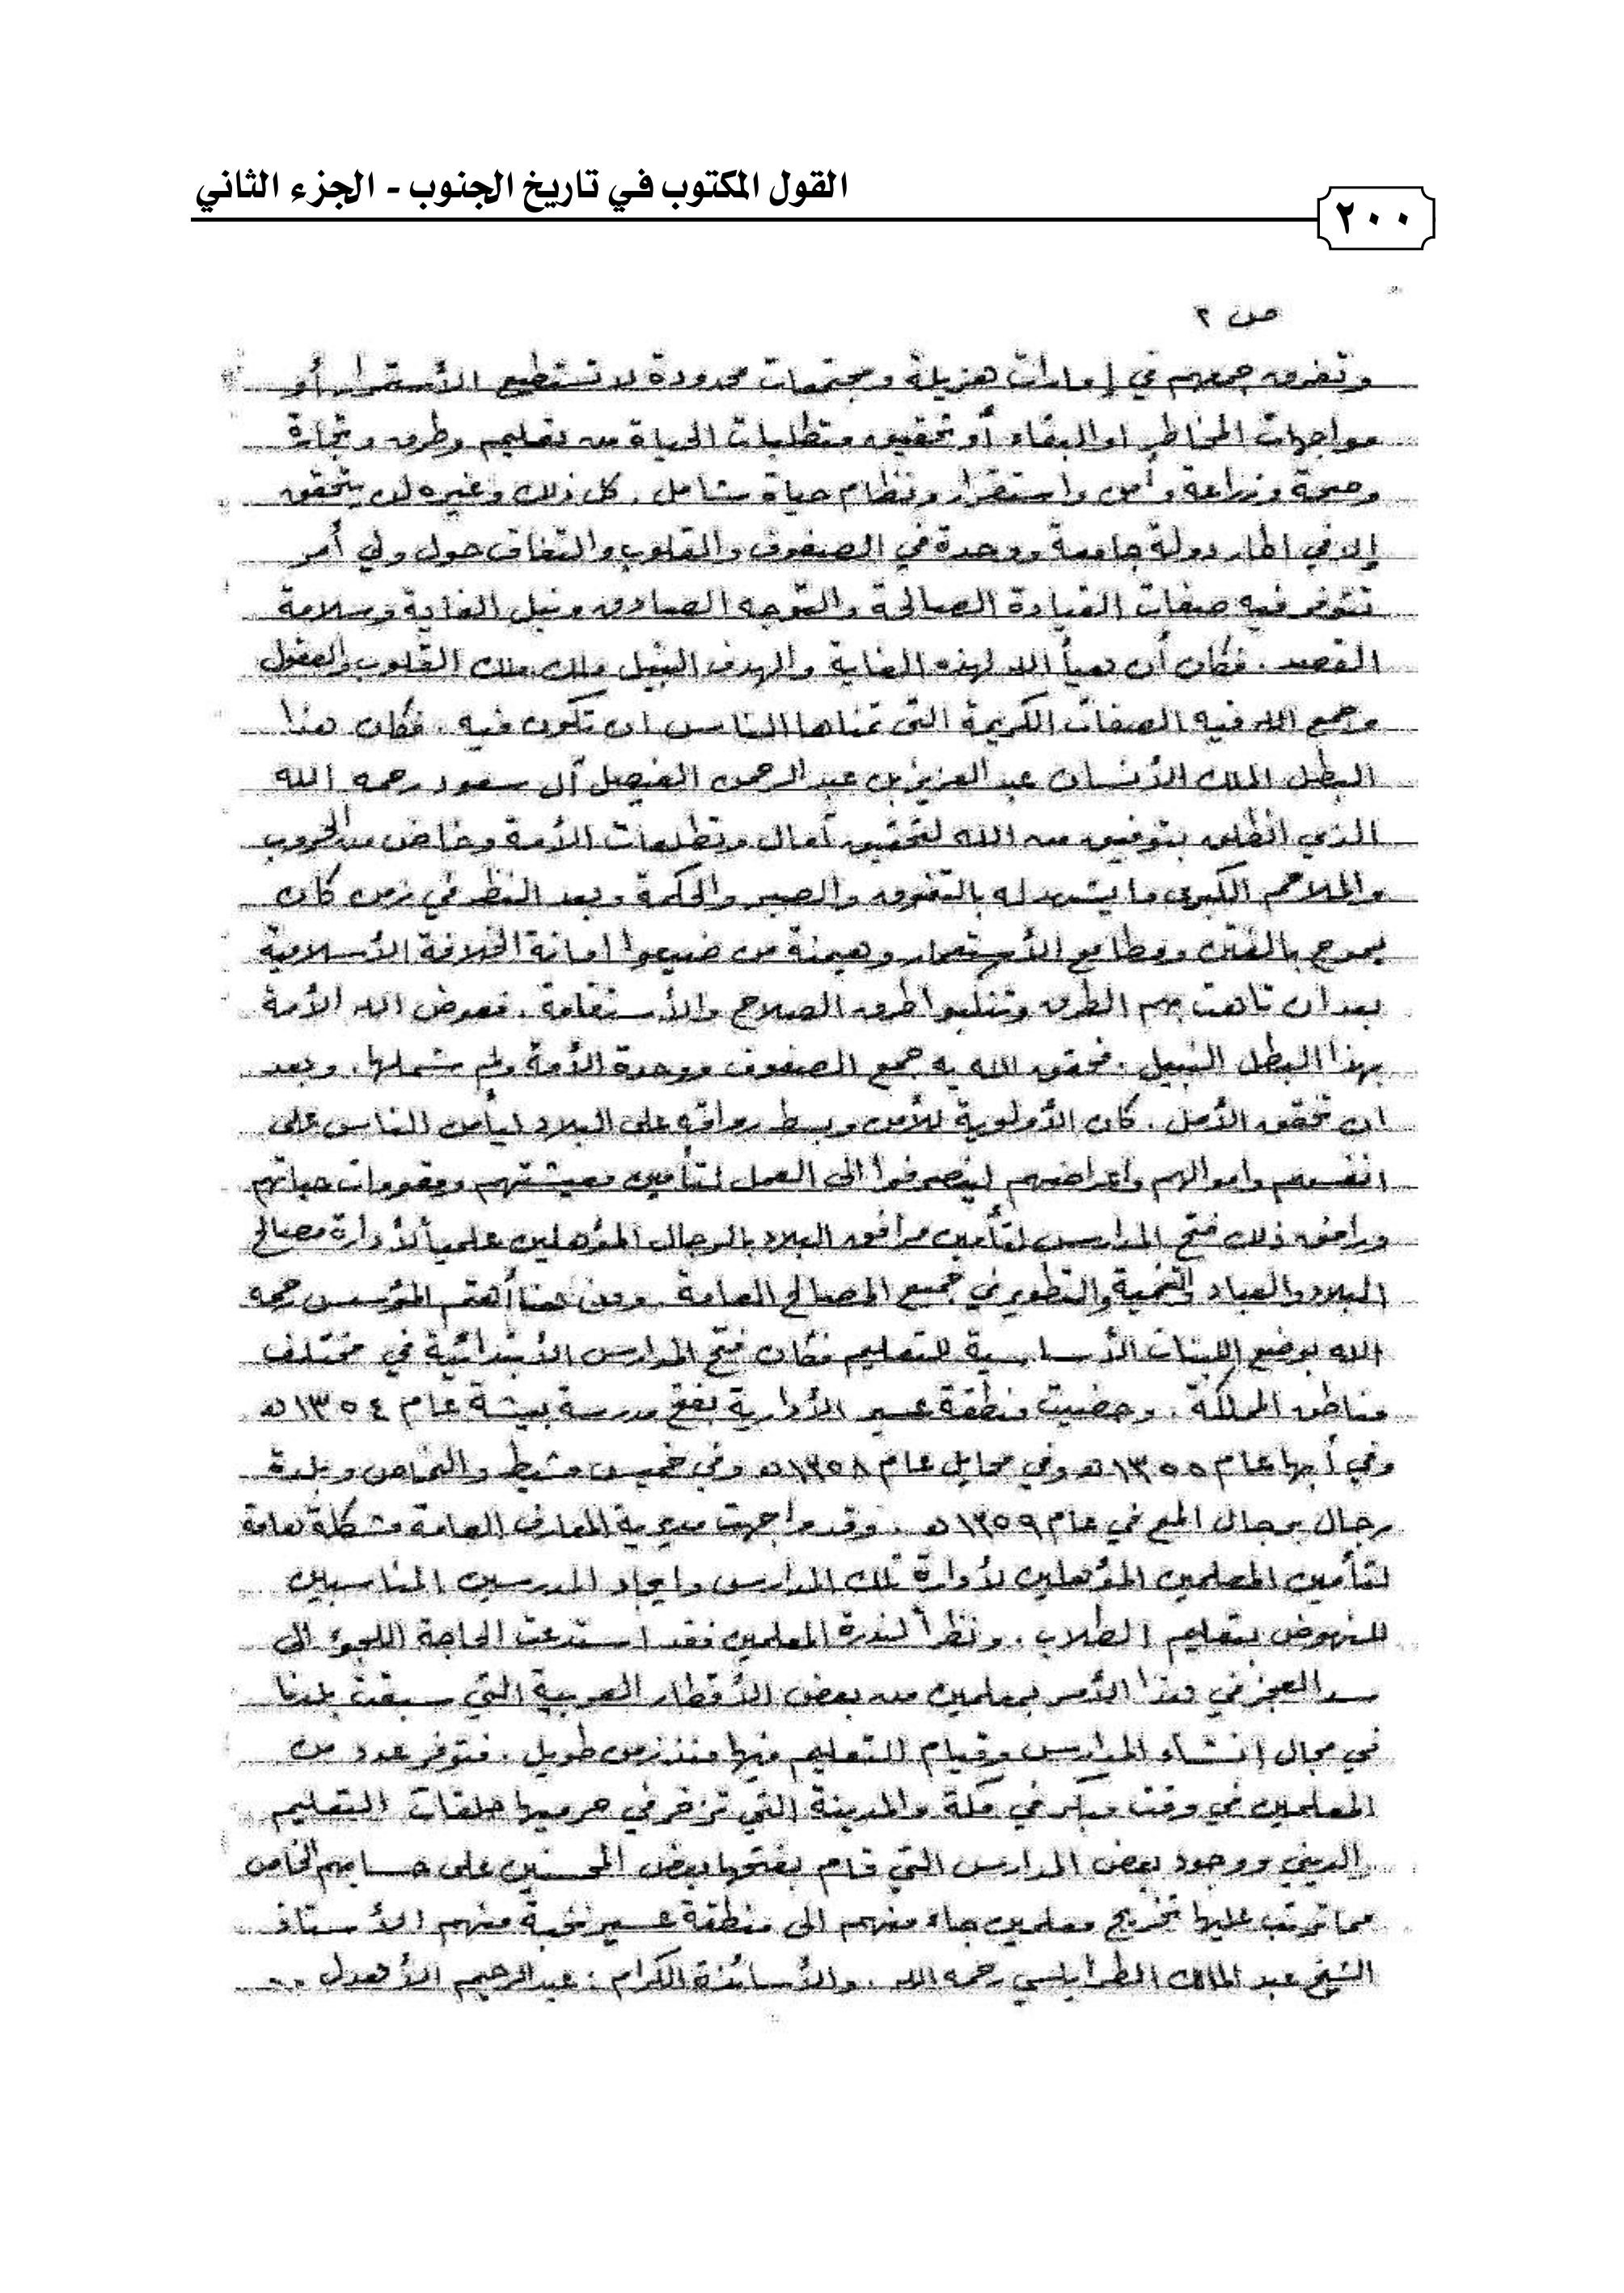 القول المكتوب في تاريخ الجنوب - الجزء الثاني
٢٠٠
ص ٢
وتفرق جمعهم في إمارات هزيلة ومجتمعات محدودة لا تستطيع الأستقرار أو
مواجهات المخاطر او البقاء أو تحقيق متطلبات الحياة من تعليم وطرق وتجارة
وصحة وزراعة وأمن واستقرار ونظام حياة شامل . كل ذلك وغيره لن يتحقق
إلا في اطار دولة جامعة ووحدة في الصفوف والقلوب والتفاف حول ولي أمر
تتوفر فيه صفات القيادة الصالحة والتوجه الصادق ونبل الغاية وسلامة
القصد . فكان أن هيأ الله لهذه الغاية والهدف النبيل ملك ملك القلوب والعقول
وجمع الله فيه الصفات الكريمة التي تمناها الناس ان تكون فيه . فكان هذا
البطل الملك الأنسان عبد العزيز بن عبد الرحمن الفيصل آل سعود رحمه الله
الذي انطلق بتوفيق من الله لتحقيق آمال وتطلعات الأمة وخاض من الحروب
والملاحم الكبرى ما يشهد له بالتفوق والصبر والحكمة وبعد النظر في زمن كان
يموج بالفتن ومطامع الأستعمار وهيمنة من ضيعوا امانة الخلافة الأسلامية
بعد ان تاهت بهم الطرق وتنكبوا طرق الصلاح والأستقامة . فعوض الله الأمة
بهذا البطل النبيل . فحقق الله به جمع الصفوف ووحدة الأمة ولم شملها . وبعد
ان تحقق الأمل . كان الأولوية للأمن وبسط رواقه على البلاد ليأمن الناس على
انفسهم واموالهم واعراضهم لينصرفوا الى العمل لتأمين معيشتهم ومقومات حياتهم
ورافق ذلك فتح المدارس لتأمين مرافق البلاد بالرجال المؤهلين علمياً لأدارة مصالح
البلاد والعباد والتنمية والتطوير في جميع المصالح العامة . ومن هنا أهتم المؤسس رحمه
الله بوضع اللبنات الأساسية للتعليم فكان فتح المدارس الأبتدائية في مختلف
مناطق المملكة . وحضيت منطقة عسير الأدارية بفتح مدرسة ببيشة عام ١٣٥٤ه
وفي أبها عام ١٣٥٥ه وفي محايل عام ١٣٥٨ه وفي خميس مشيط والنماص وبلدة
رجال برجال المع في عام ١٣٥٩ه . وقد واجهت مديرية المعارف العامة مشكلة عامة
لتأمين المعلمين المؤهلين لأدارة تلك المدارس وايجاد المدرسين المناسبين
للنهوض بتعليم الطلاب . ونظراً لندرة المعلمين فقد استدعت الحاجة اللجوء الى
سد العجز في هذا الأمر بمعلمين من بعض الأقطار العربية التي سبقت بلدنا
في مجال إنشاء المدارس وقيام التعليم فيها منذ زمن طويل . فتوفر عدد من
المعلمين في وقت مبكر في مكة والمدينة التي تزخر في حرميها حلقات التعليم
الديني ووجود بعض المدارس التي قام بفتحها بعض المحسنين على حسابهم الخاص
مما ترتب عليها تخريج معلمين جاء منهم الى منطقة عسير نخبة منهم الأستاذ
الشيخ عبد المالك الطرابلسي رحمه الله . والأساتذة الكرام : عبدالرحيم الأهدل ..